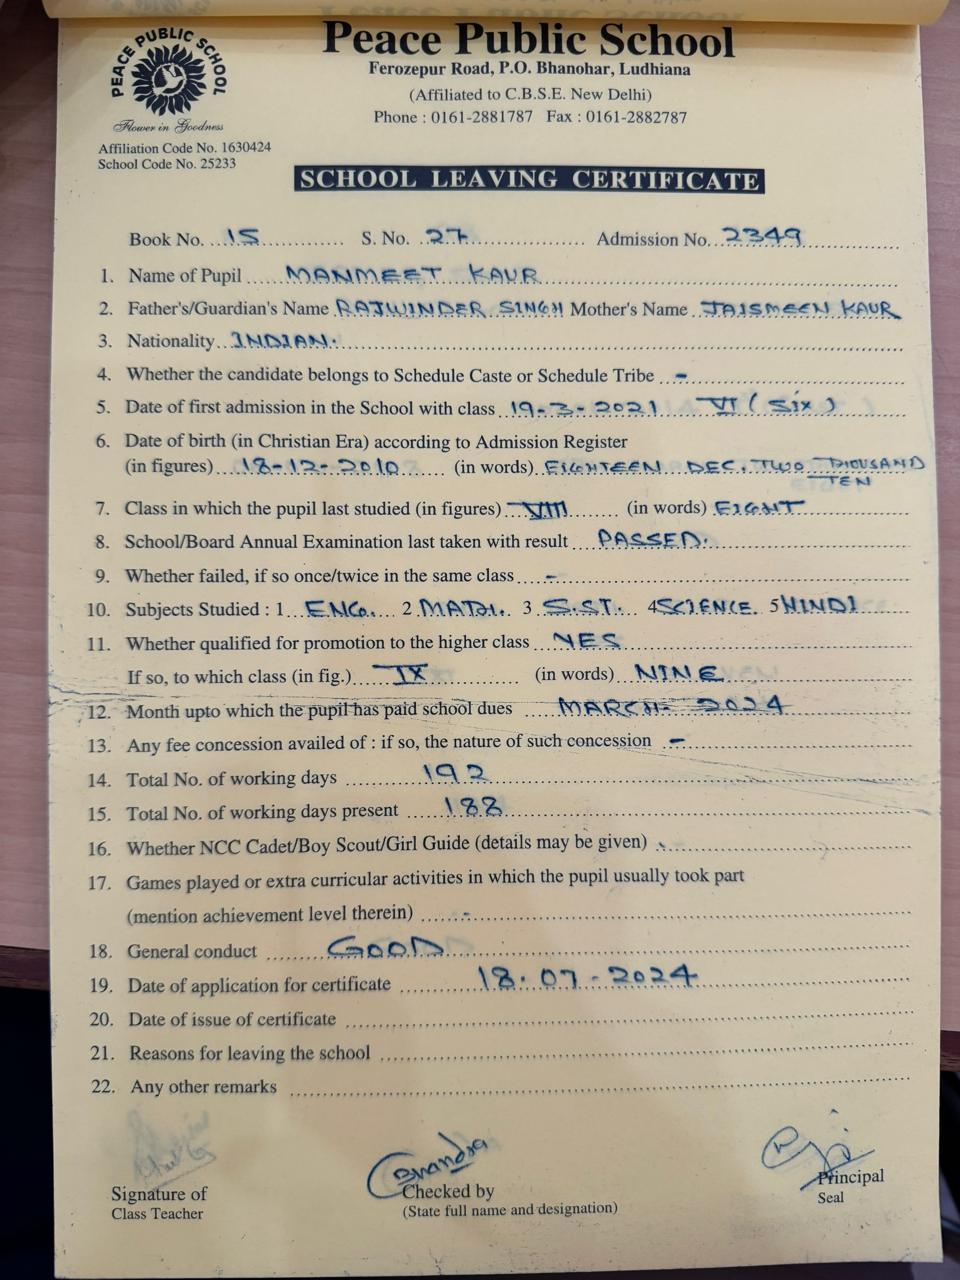 Peace Public School
PEACE PUBLIC SCHOOL
Flower in Goodness
Ferozepur Road, P.O. Bhanohar, Ludhiana
(Affiliated to C.B.S.E. New Delhi)
Phone : 0161-2881787 Fax : 0161-2882787
Affiliation Code No. 1630424
School Code No. 25233
SCHOOL LEAVING CERTIFICATE
Book No. 15 S. No. 27 Admission No. 2349
1. Name of Pupil MANMEET KAUR
2. Father's/Guardian's Name RAJWINDER SINGH Mother's Name JAISMEEN KAUR
3. Nationality INDIAN.
4. Whether the candidate belongs to Schedule Caste or Schedule Tribe -
5. Date of first admission in the School with class 19-3-2021 VI (SIX)
6. Date of birth (in Christian Era) according to Admission Register
(in figures) 18-12-2010 (in words) EIGHTEEN DEC. TWO THOUSAND
TEN
7. Class in which the pupil last studied (in figures) VIII (in words) EIGHT
8. School/Board Annual Examination last taken with result PASSED.
9. Whether failed, if so once/twice in the same class -
10. Subjects Studied : 1 ENG. 2 MATH. 3 S.ST. 4 SCIENCE 5 HINDI
11. Whether qualified for promotion to the higher class YES
If so, to which class (in fig.) IX (in words) NINE
12. Month upto which the pupil has paid school dues MARCH- 2024
13. Any fee concession availed of : if so, the nature of such concession -
14. Total No. of working days 192
15. Total No. of working days present 188
16. Whether NCC Cadet/Boy Scout/Girl Guide (details may be given) -
17. Games played or extra curricular activities in which the pupil usually took part
(mention achievement level therein) -
18. General conduct GOOD
19. Date of application for certificate 18.07-2024
20. Date of issue of certificate
21. Reasons for leaving the school
22. Any other remarks
Signature of
Class Teacher
Checked by
(State full name and designation)
Principal
Seal